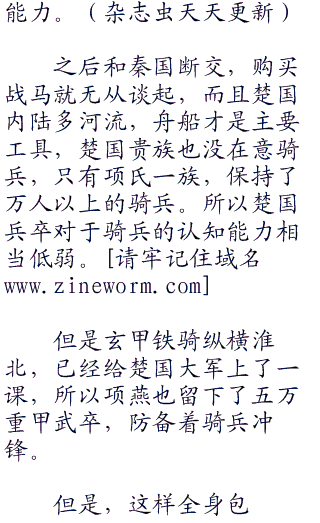 能力。（杂志虫天天更新）
之后和秦国断交，购买
战马就无从谈起，而且楚国
内陆多河流，舟船才是主要
工具，楚国贵族也没在意骑
兵，只有项氏一族，保持了
万人以上的骑兵。所以楚国
兵卒对于骑兵的认知能力相
当低弱。[请牢记住域名
www.zineworm.com]
但是玄甲铁骑纵横淮
北，已经给楚国大军上了一
课，所以项燕也留下了五万
重甲武卒，防备着骑兵冲
锋。
但是，这样全身包